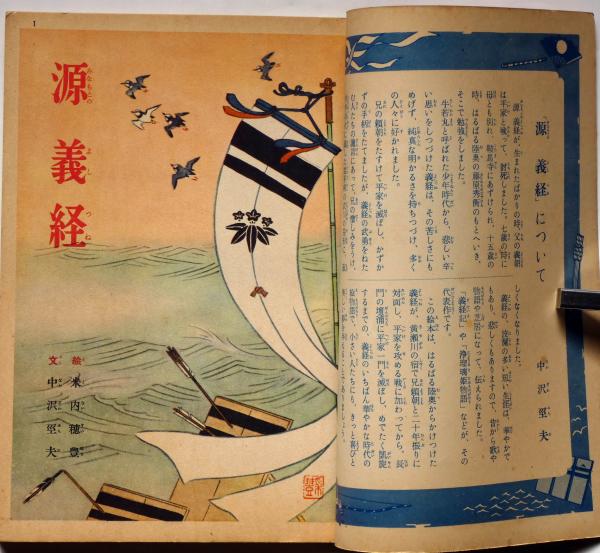 「源 義経」について
中沢巠夫
源 義経が、生まれたばかりの時、父の義朝
は平家と戦って、討死しました。七歳の時に
母とも別れ、鞍馬寺にあずけられ、十五歳の
時、はるばる陸奥の藤原秀衡のもとへいき、
そこで勉強をしました。
牛若丸と呼ばれた少年時代から、悲しい辛
い思いをしつづけた義経は、その苦しさにも
めげず、純真な明かるさを持ちつづけ、多く
の人々に好かれました。
兄の頼朝をたすけて平家を滅ぼし、かずか
ずの手柄をたてましたが、義経の武勇をねた
む人たちの
にあって、兄の憎しみをうけ、
しくなくなりました。
義経の、波瀾の多い短い生涯は、華やかで
もあり、悲しくもありますので、昔から歌や
物語や芝居になって、伝えられました。
「義経記」や「浄瑠璃姫物語」などが、その
代表作です。
この絵本は、はるばる陸奥からかけつけた
義経が、黄瀬川の宿で兄頼朝と二十年振りに
対面し、平家を攻める戦に加わってから、長
門の壇浦に平家一門を滅ぼし、めでたく凱旋
するまでの、義経のいちばん華やかな時代の
絵物語で、小さい人たちにも、きっと喜びと
1
源義経
みなもとの よし つね
絵 米内穂豊
文 中沢巠夫